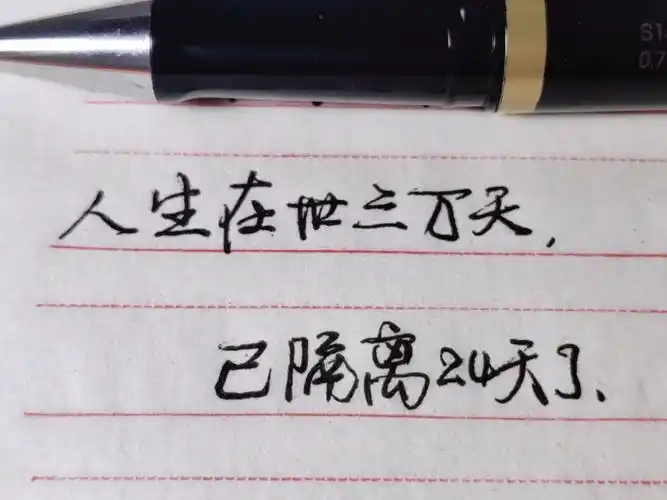 0.7
人生在世三万天,
已隔离24天了、